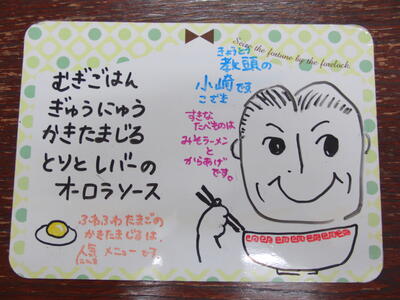 Seize the fortune by the forelock.
むぎごはん
ぎゅうにゅう
かきたまじる
とりとレバーの
オーロラソース
ふわふわたまごの
かきたまじるは、
人気メニューです
にんき
きょうとう
教頭の
小崎です
こざき
すきな
たべものは
みそラーメン
と
からあげ
です。